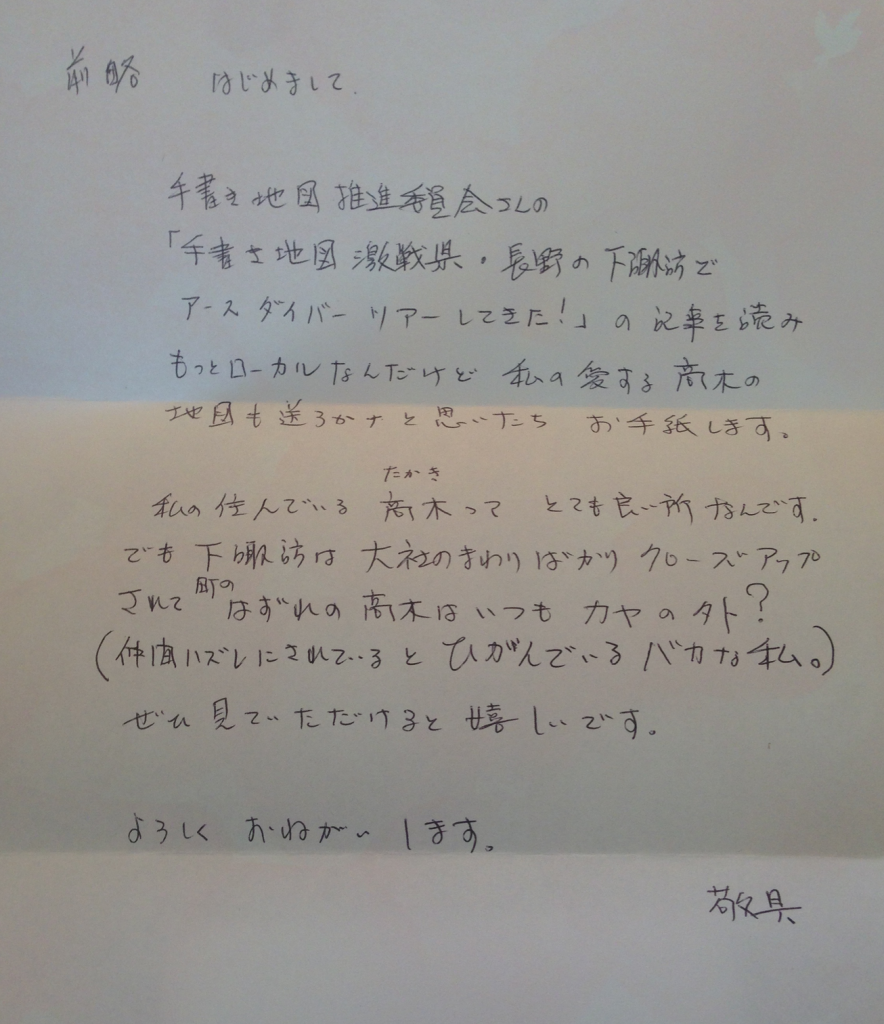 前略　はじめまして.
手書き地図推進委員会さんの
「手書き地図激戦県・長野の下諏訪で
アースダイバーツアーしてきた!」の記事を読み
もっとローカルなんだけど 私の愛する高木の
地図も送ろかナと思いたち お手紙します。
たかき
私の住んでいる 高木って とても良い所なんです.
でも 下諏訪は 大社のまわりばかり クローズアップ
されて 町の はずれの 高木は いつも カヤのタト?
(仲間ハズレにされていると ひがんでいる バカな私。)
ぜひ 見ていただけると 嬉しいです。
よろしく おねがい します。
敬具